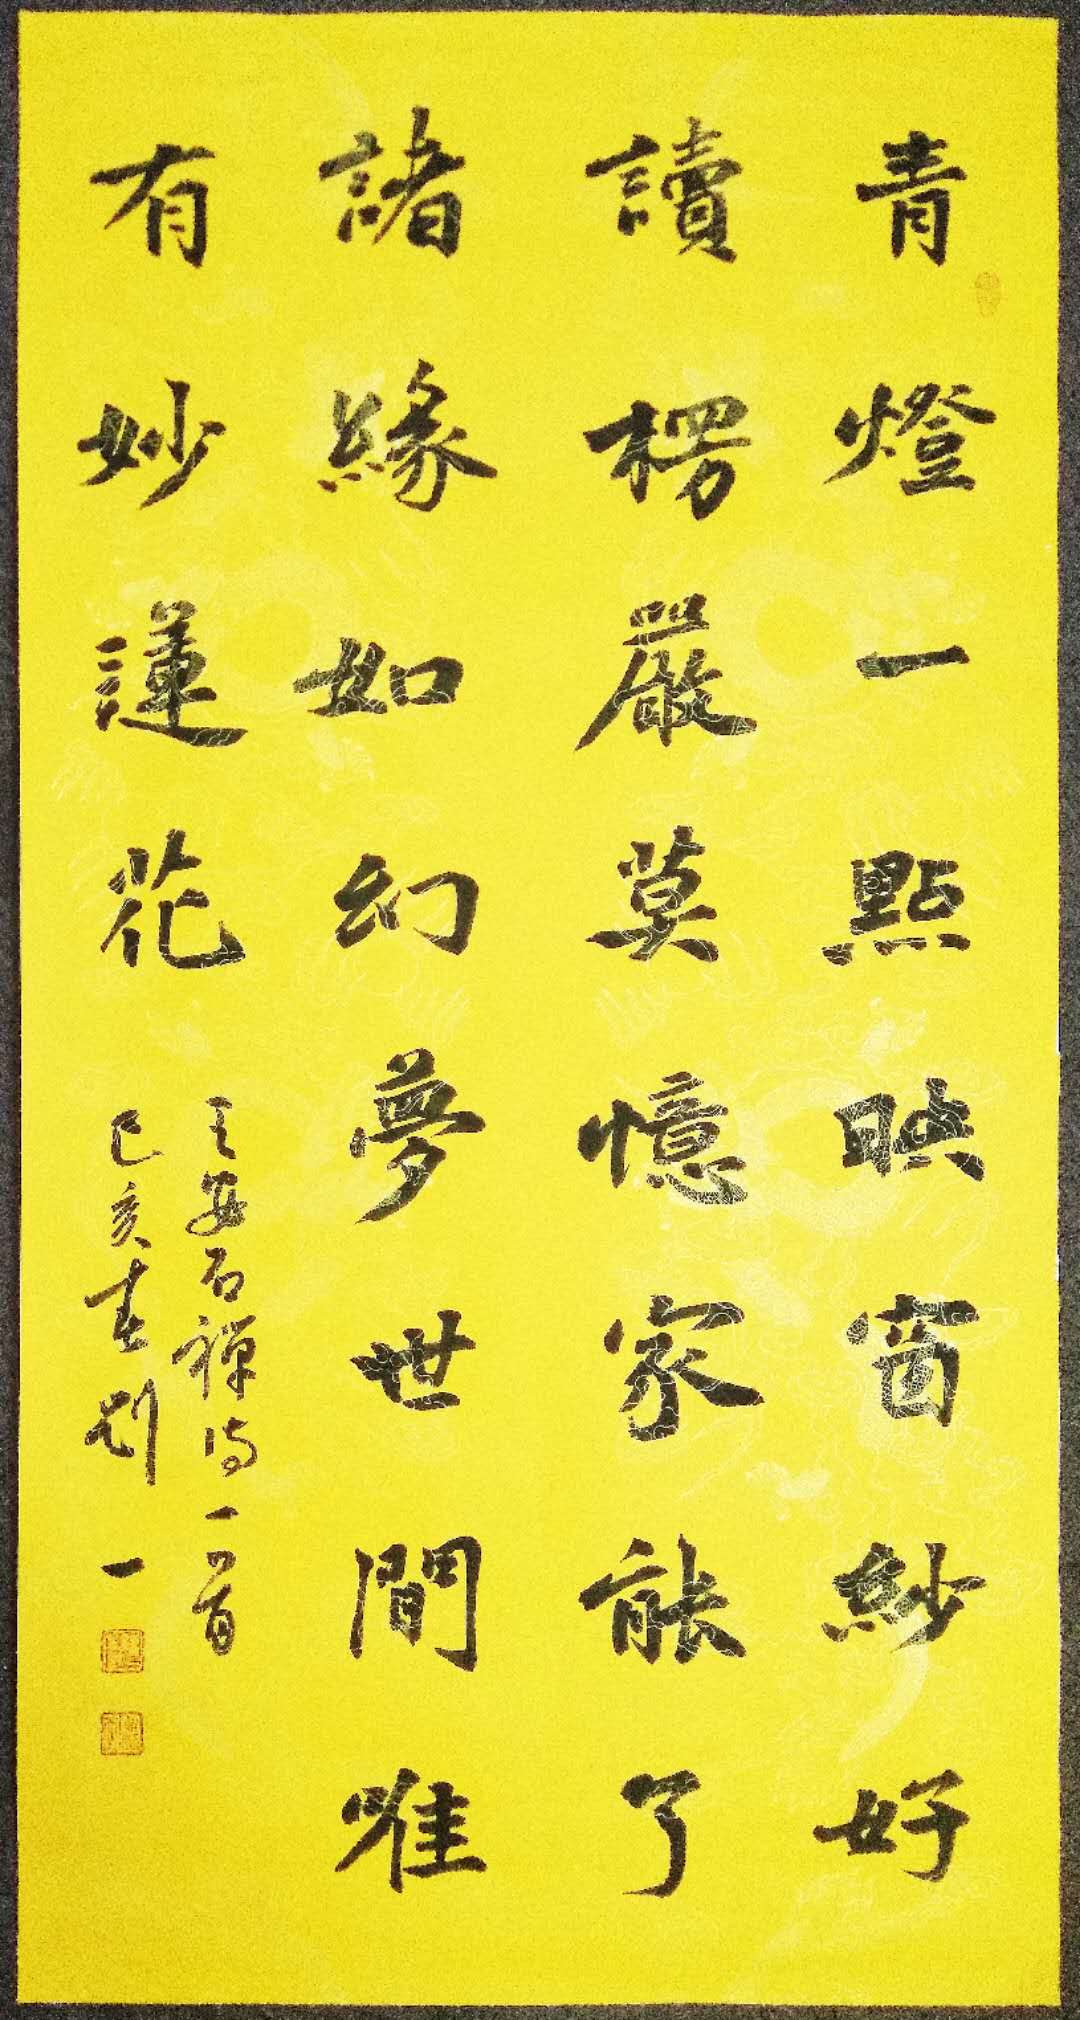 青燈一點映窗紗好
讀楞嚴莫憶家能了
諸緣如幻夢世間唯
有妙蓮花
王安石禪詩一首
己亥春 一